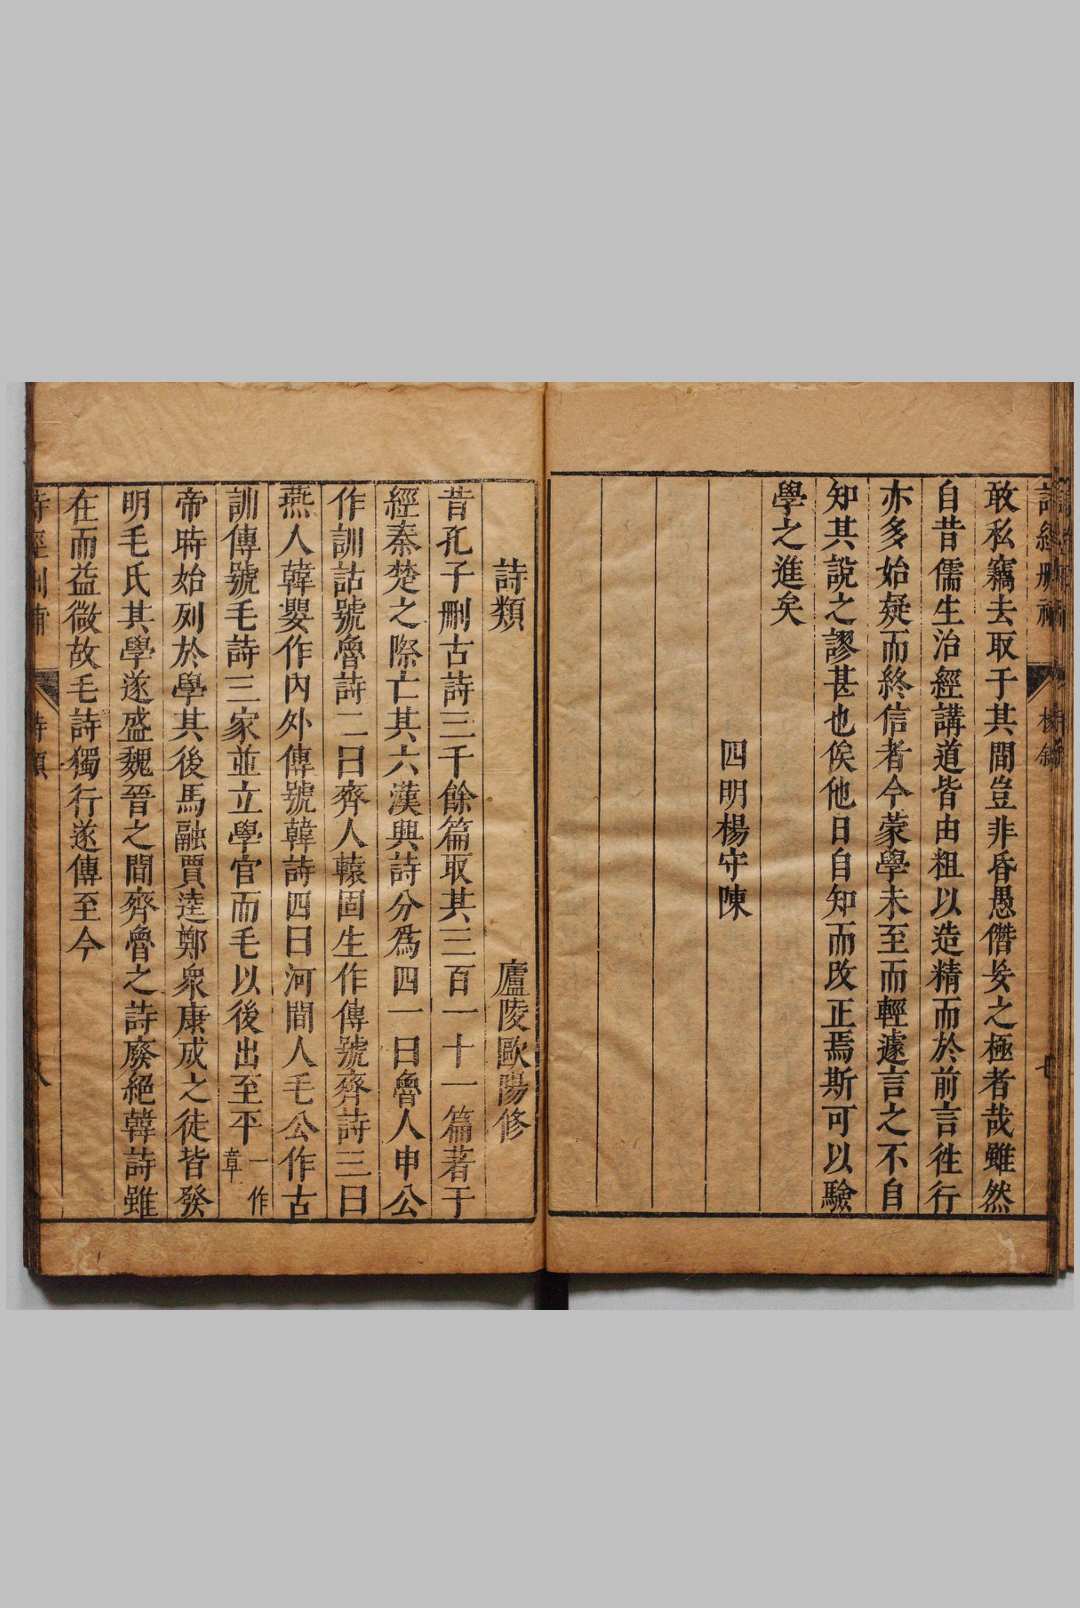 詩經刪補
敢私竊去取于其間豈非昏愚僭妄之極者哉雖然
自昔儒生治經講道皆由粗以造精而於前言徃行
亦多始疑而終信者今蒙學未至而輕遽言之不自
知其說之謬甚也俟他日自知而改正焉斯可以驗
學之進矣
四明楊守陳
詩類
廬陵歐陽修
昔孔子刪古詩三千餘篇取其三百一十一篇著于
經秦楚之際亡其六漢興詩分為四一曰魯人申公
作訓詁號魯詩二曰齊人轅固生作傳號齊詩三曰
燕人韓嬰作內外傳號韓詩四曰河間人毛公作古
訓傳號毛詩三家並立學官而毛以後出至平一作章
帝時始列於學其後馬融賈逵鄭衆康成之徒皆發
明毛氏其學遂盛魏晉之間齊魯之詩廢絕韓詩雖
在而益微故毛詩獨行遂傳至今
詩類
八